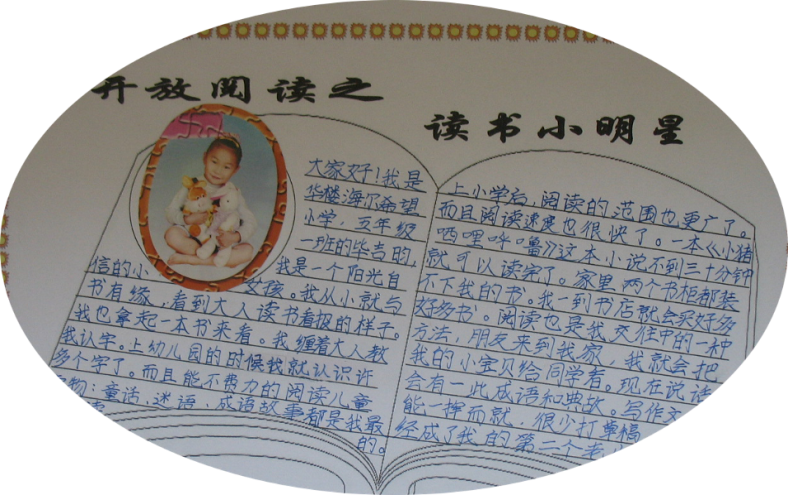 开放阅读之
读书小明星
大家好!我是
华楼海尔希望
小学,五年级
一班的华吉的,
我是一个阳光自
信的小女孩。我从小就与
书有缘,看到大人读书看报的样子。
我也拿起一本书来看。我缠着大人教
我认字。上幼儿园的时候我就认识许
多个字了。而且能不费力的阅读儿童
物:童话,迷语,成语故事都是我最
的。
上小学后,阅读的范围也更广了。
而且阅读速度也很快了。一本《小猪
唏哩呼噜》这本小说不到三十分钟
就可以读完了。家里两个书柜都装
不下我的书。我一到书店就会买好多
好多书。阅读也是我交往中的一种
方法,朋友来到我家,我就会把
我的小宝贝给同学看。现在说话
会有一些成语和典故。写作文
能一挥而就,很少打草稿
经成了我的第二个老